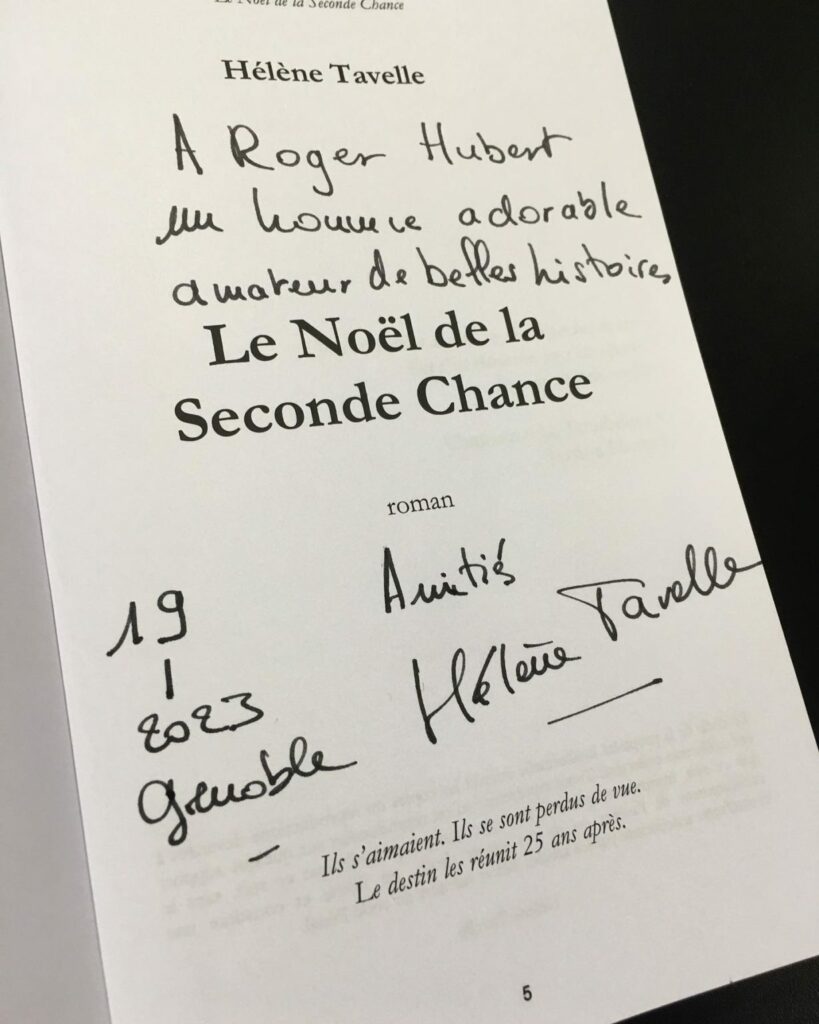 Le Noël de la Seconde Chance
Hélène Tavelle
A Roger Hubert
un homme adorable
amateur de belles histoires
Le Noël de la
Seconde Chance
roman
Amitiés
Hélène Tavelle
19
I
2023
Grenoble
Ils s'aimaient. Ils se sont perdus de vue.
Le destin les réunit 25 ans après.
5